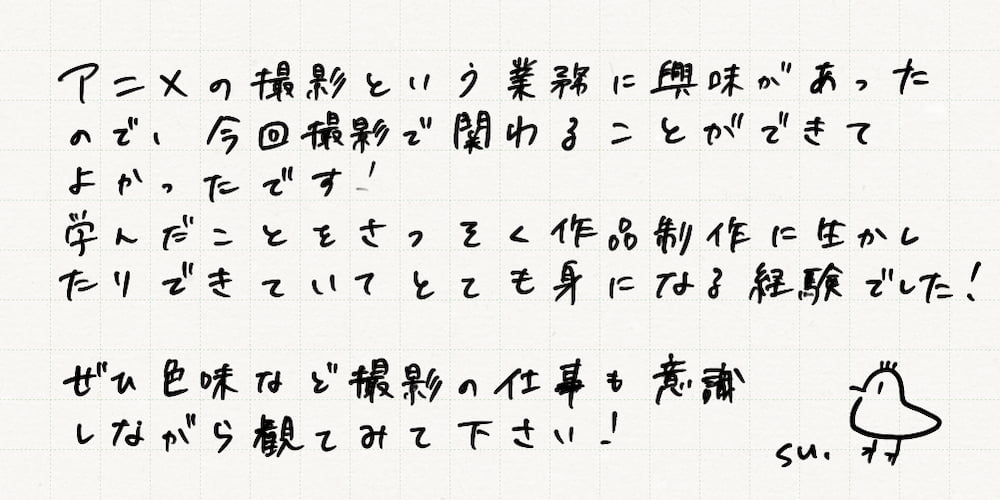 アニメの撮影という業務に興味があった
ので、今回撮影で関わることができて
よかったです!
学んだことをさっそく作品制作に生かし
たりできていてとても身になる経験でした!
ぜひ色味など撮影の仕事も意識
しながら観てみて下さい!
su.